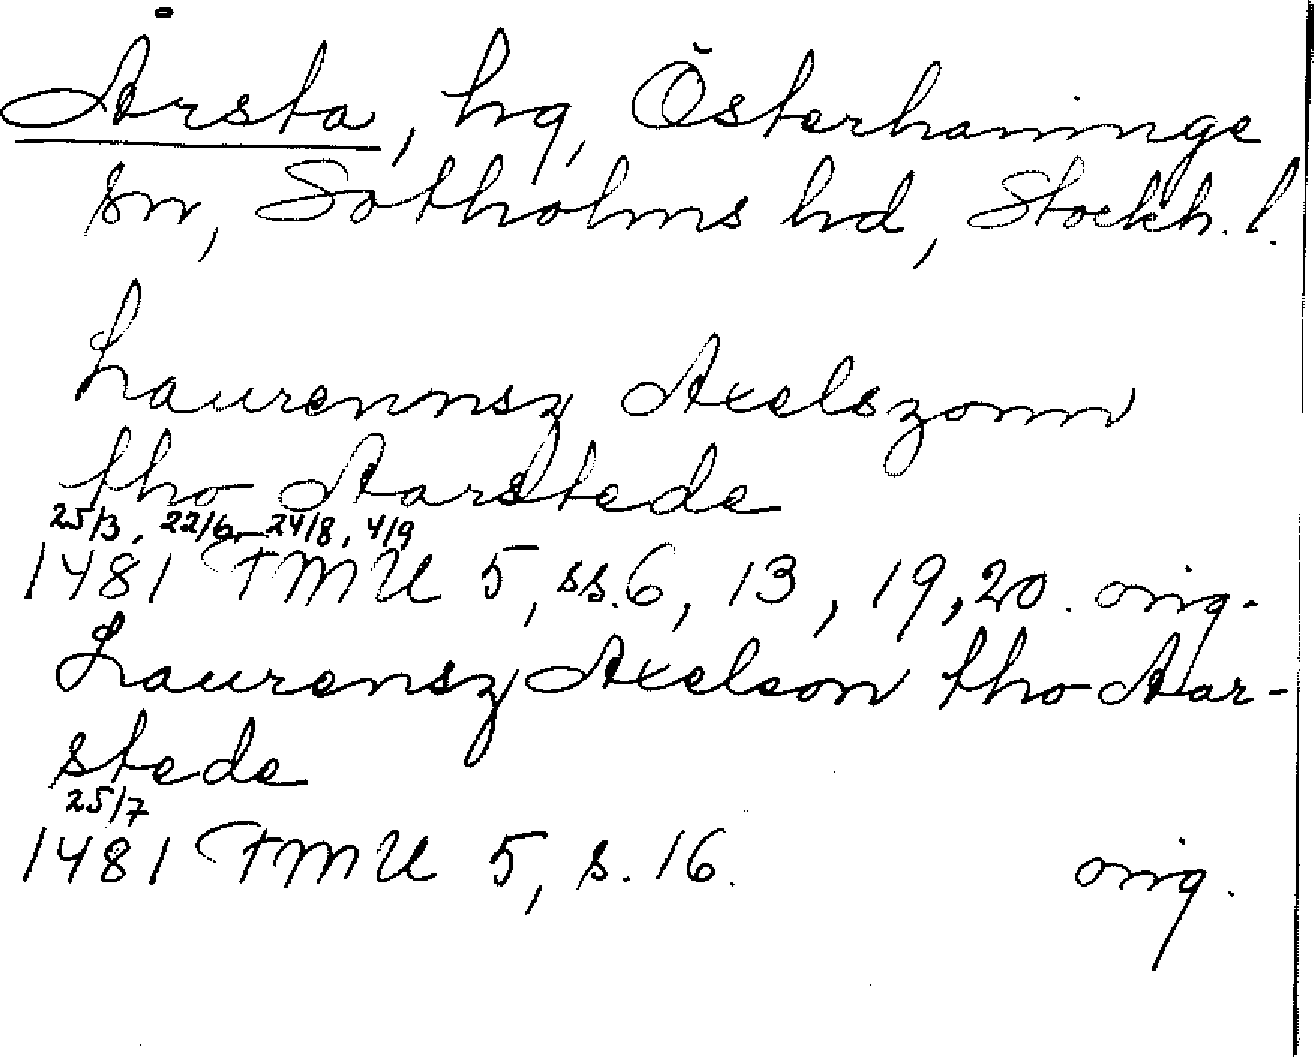 Årsta, hg, Österhaninge
sn, Sotholms hd, Stockh. l.
Laurennsz Axelszonn
tho Aarstede
25/3, 22/6, 24/8, 4/9
1481 FMU 5, ss. 6, 13, 19, 20. orig.
Laurensz Axelson tho Aar-
stede
25/7
1481 FMU 5, s. 16. orig.